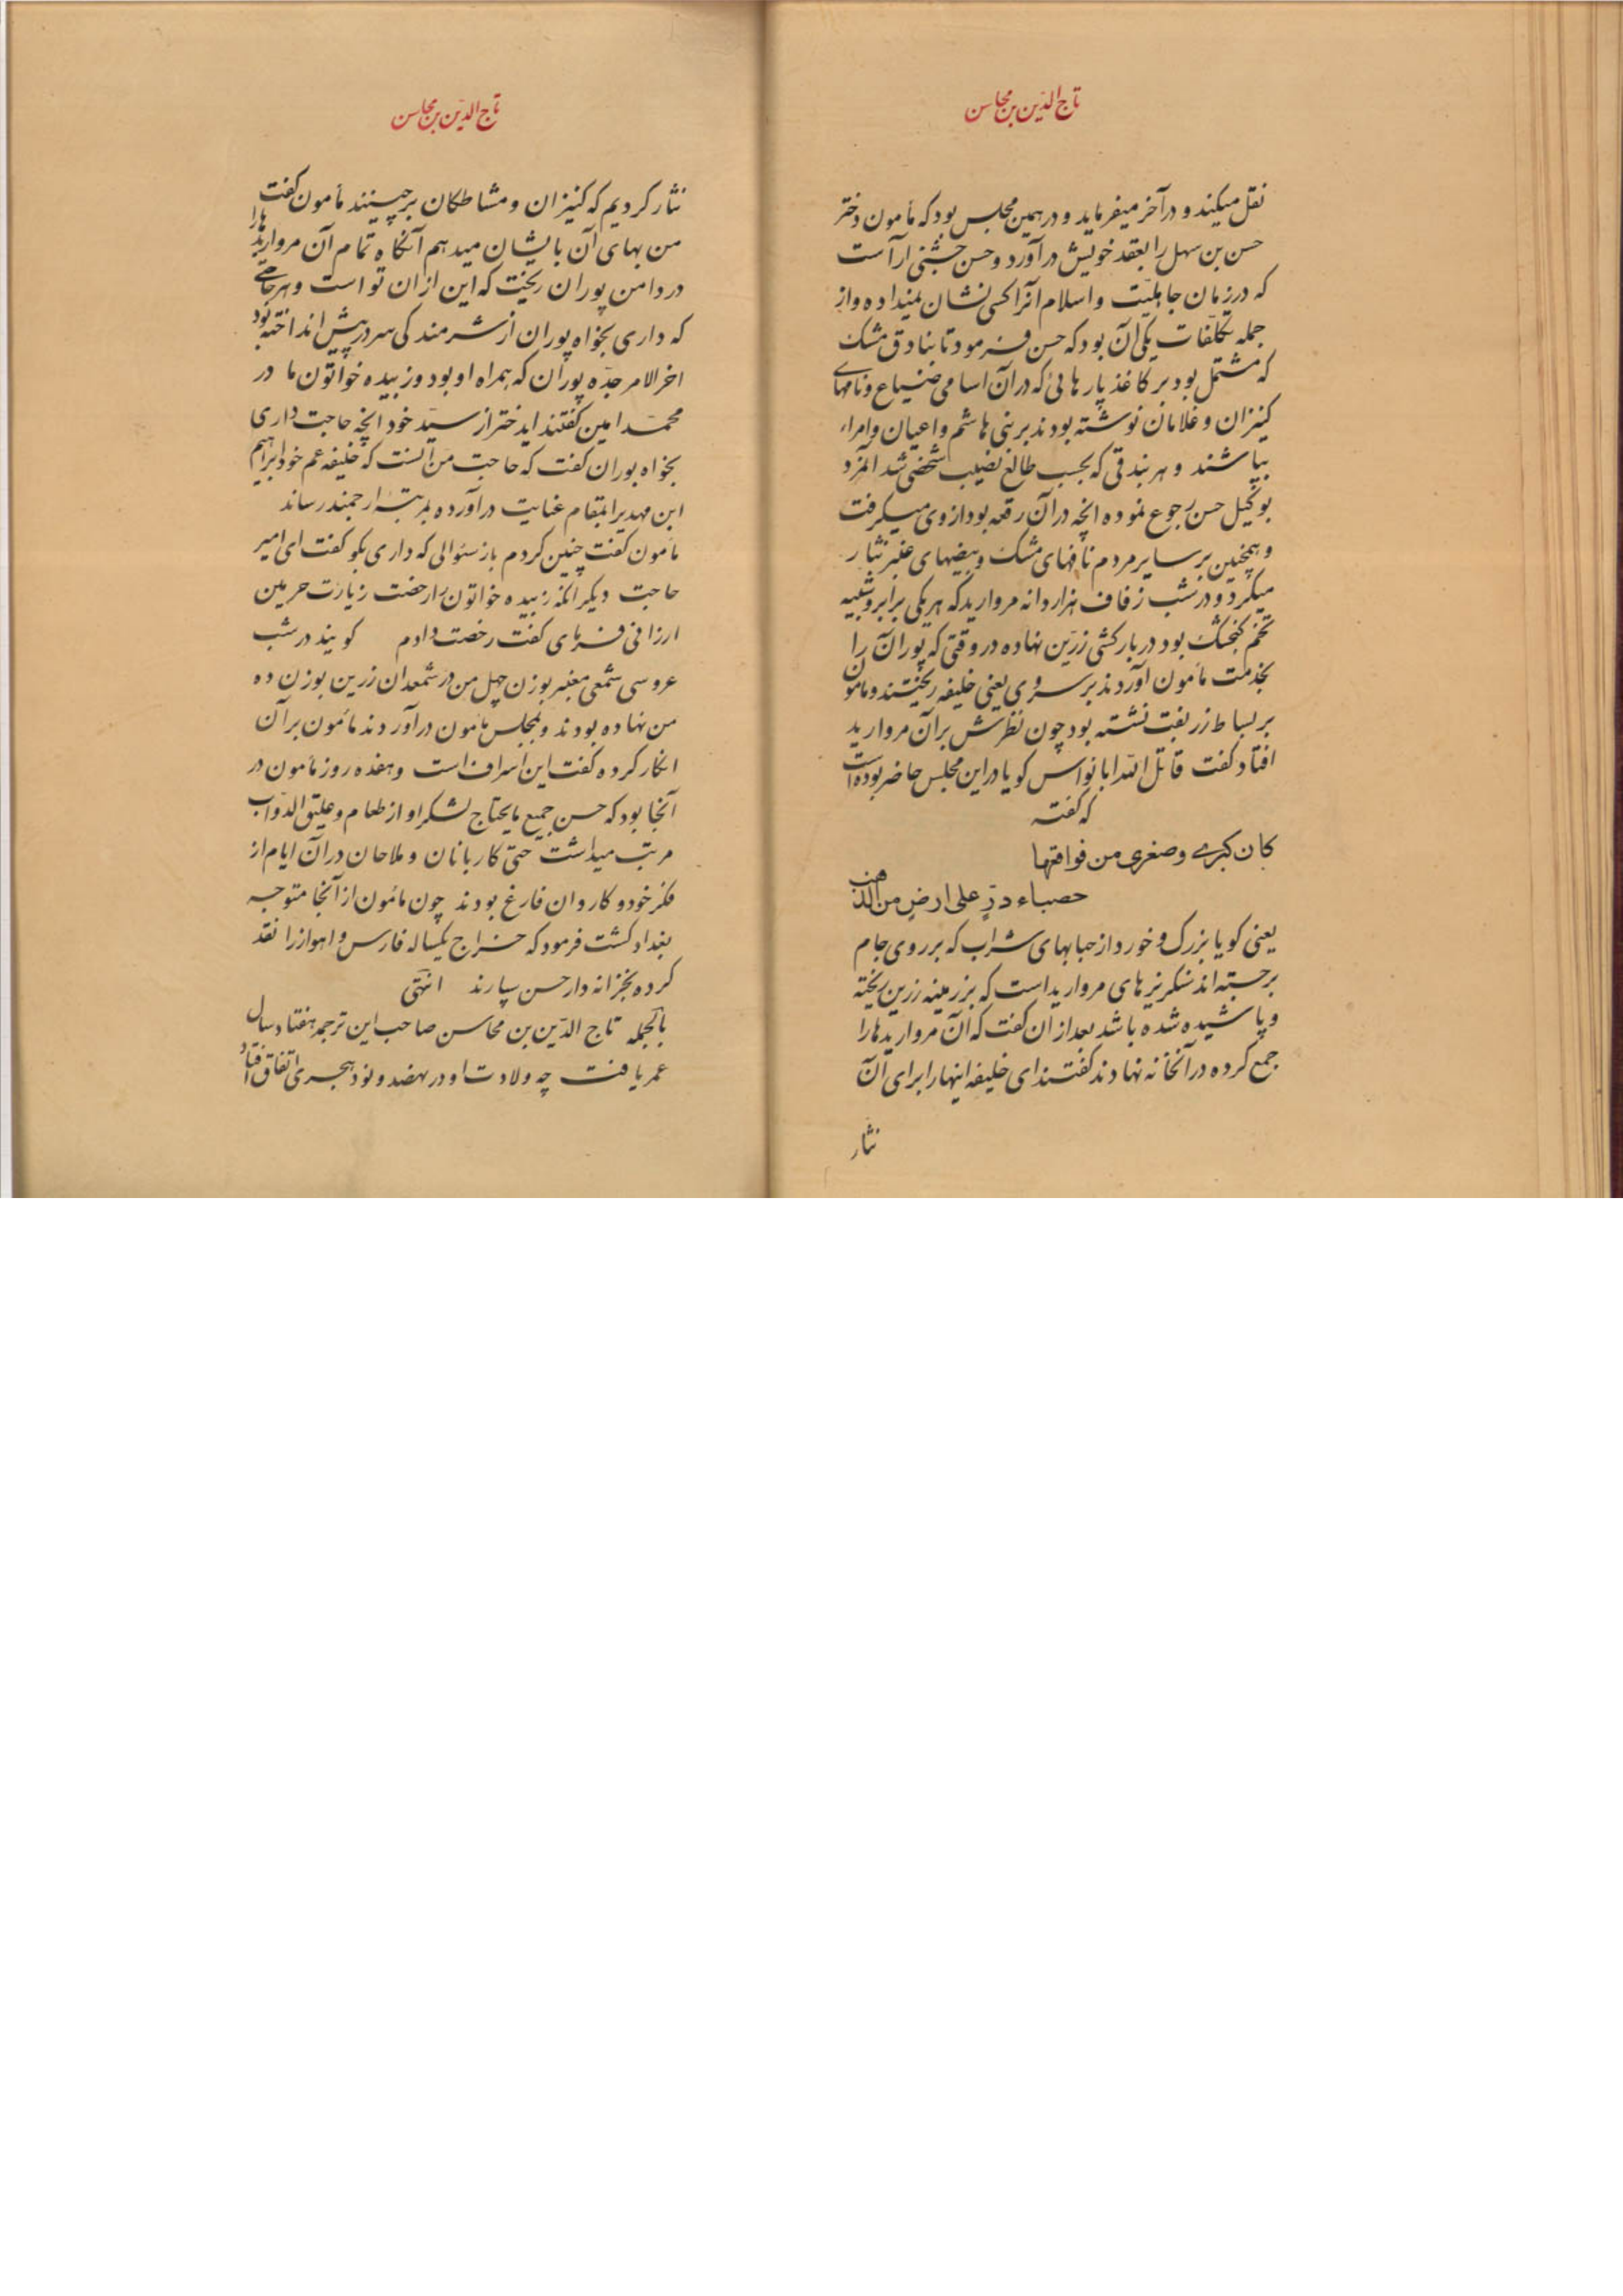 تاج الدین بن محاسن
نقل میکند و در آخر میفرماید و در همین مجلس بود که مأمون دختر
حسن بن سهل را بعقد خویش در آورد و حسن جشنی آراست
که در زمان جاهلیّت و اسلام آنرا کسی نشان نمیداده و از
جمله تکلّفات یکی آن بود که حسن فرمود تا بنادق مشک
که مشتمل بود بر کاغذ پارهائی که در آن اسامی ضیاع و نامهای
کنیزان و غلامان نوشته بودند بر بنی هاشم و اعیان و امراء
بپاشند و هر بندقی که بحسب طالع نصیب شخصی شد آنمزد
بوکیل حسن رجوع نموده آنچه در آن رقعه بود از وی میگرفت
و همچنین بر سایر مردم نافهای مشک و بیضهای عنبر نثار
میکرد و در شب زفاف هزار دانه مروارید که هر یکی برابر و شبیه
تخم گنجشک بود در بارکشی زرّین نهاده در وقتی که پوران را
بخدمت مأمون آوردند بر سر وی یعنی خلیفه ریختند و مأمون
بر بساط زربفت نشسته بود چون نظرش بر آن مروارید
افتاد گفت قاتل اللّه ابا نواس گویا در این مجلس حاضر بوده است
که گفته
کان کبری و صغری من فواقعها
حصباء درٍّ علی ارضٍ من الذهب
یعنی گویا بزرگ و خورد از حبابهای شراب که بر روی جام
برجسته اند سنگریزهای مروارید است که بر زمینه زرین ریخته
و پاشیده شده باشد بعد از ان گفت که آن مرواریدها را
جمع کرده در آنخانه نهادند گفتند ای خلیفه اینها را برای آن
نثار
تاج الدین بن محاسن
نثار کردیم که کنیزان و مشاطگان برچینند مأمون گفت
من بهای آن بایشان میدهم آنگاه تمام آن مرواریدها را
در دامن پوران ریخت که این از ان تو است و هر حاجتی
که داری بخواه پوران از شرمندگی سر در پیش انداخته بود
اخر الامر جدّه پوران که همراه او بود و زبیده خواتون مادر
محمّد امین گفتند ایدختر از سیّد خود انچه حاجت داری
بخواه پوران گفت که حاجت من آنست که خلیفه عم خود ابراهیم
ابن مهدیرا بمقام عنایت در آورده بمرتبهٔ ارجمند رساند
مأمون گفت چنین کردم باز سئوالی که داری بگو گفت ای امیر
حاجت دیگر آنکه زبیده خواتون را رخصت زیارت حرمین
ارزانی فرمای گفت رخصت دادم گویند در شب
عروسی شمعی معنبر بوزن چهل من در شمعدان زرین بوزن ده
من نهاده بودند و بمجلس مأمون در آوردند مأمون بر آن
انکار کرده گفت این اسراف است و هفده روز مأمون در
آنجا بود که حسن جمیع مایحتاج لشکر او از طعام و علیق الدّواب
مرتب میداشت حتّی کاربانان و ملاحان در آن ایام از
فکر خود و کاروان فارغ بودند چون مأمون از آنجا متوجه
بغداد گشت فرمود که خراج یکساله فارس و اهواز را نقد
کرده بخزانه دار حسن سپارند انتهی
بالجمله تاج الدّین بن محاسن صاحب این ترجمه هفتاد سال
عمر یافت چه ولادت او در نهصد و نود هجری اتفاق افتاد